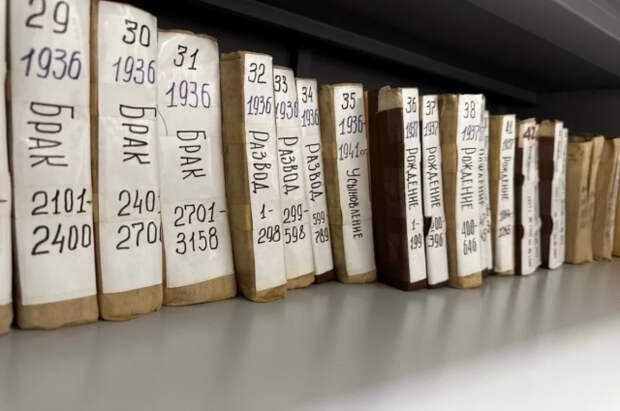 29
1936
БРАК
2101-
2400
30
1936
БРАК
240
270
31
1936
БРАК
2701-
3158
32
1936
РАЗВОД
1-
298
33
1936
РАЗВОД
299-
598
34
1936
РАЗВОД
599-
789
35
1936-
1941
УСЫНОВЛЕНИЕ
36
1937
РОЖДЕНИЕ
1-
199
37
1937
РОЖДЕНИЕ
200-
396
38
1937
РОЖДЕНИЕ
400-
646
41
РОЖДЕНИЕ